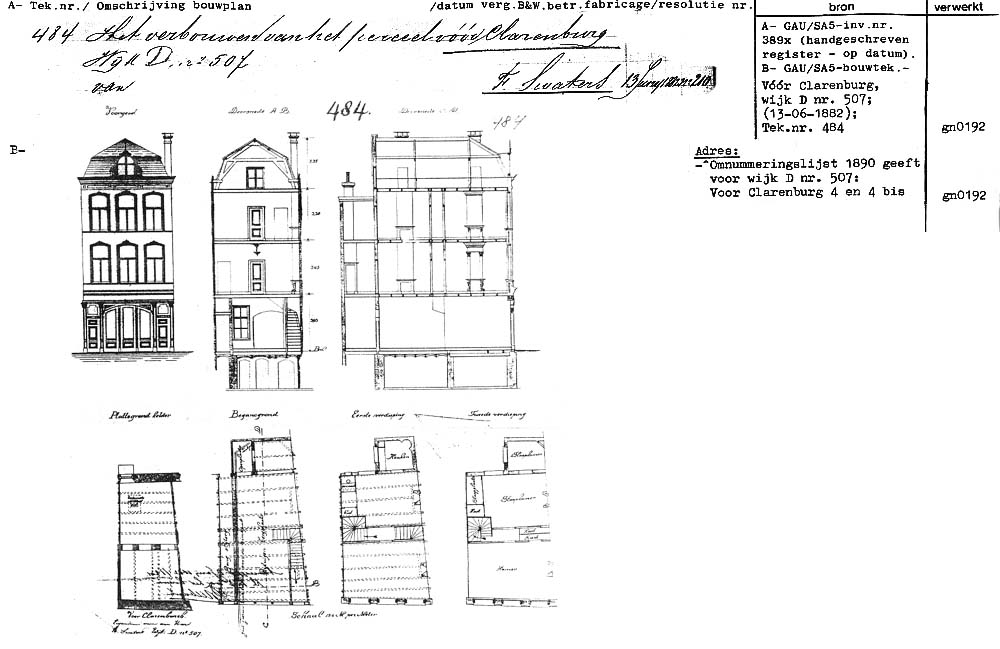 A- Tek.nr./ Omschrijving bouwplan /datum verg.B&W.betr.fabricage/resolutie nr.
bron
verwerkt
484 Het verbouwen van het perceel vóór Clarenburg
Wijk D, nº 507
van F. Swaters 13 Juny
A- GAU/SA5-inv.nr.
389x (handgeschreven
register - op datum).
B- GAU/SA5-bouwtek.-
Vóór Clarenburg,
wijk D nr. 507;
(13-06-1882);
Tek.nr. 484
gn0192
Adres:
-^Omnummeringslijst 1890 geeft
voor wijk D nr. 507:
Voor Clarenburg 4 en 4 bis
gn0192
B-
Voorgevel
Doorsnede A B
484.
Doorsnede
484
Plattegrond kelder
Begane grond
Eerste verdieping
Tweede verdieping
Keuken
Slaapkamer
Slaapkamer
Kamer
B
Voor Clarenburg
Wijk D. nº 507
Schaal